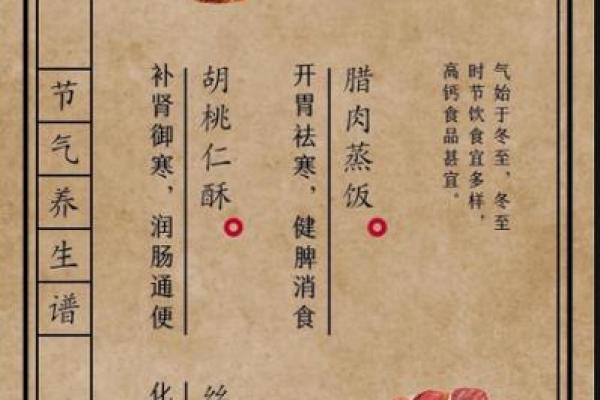 气始于冬至，冬至
时节饮食宜多样，
高钙食品甚宜。
腊肉蒸饭
开胃祛寒，健脾消食
胡桃仁酥
补肾御寒，润肠通便
节气养生谱